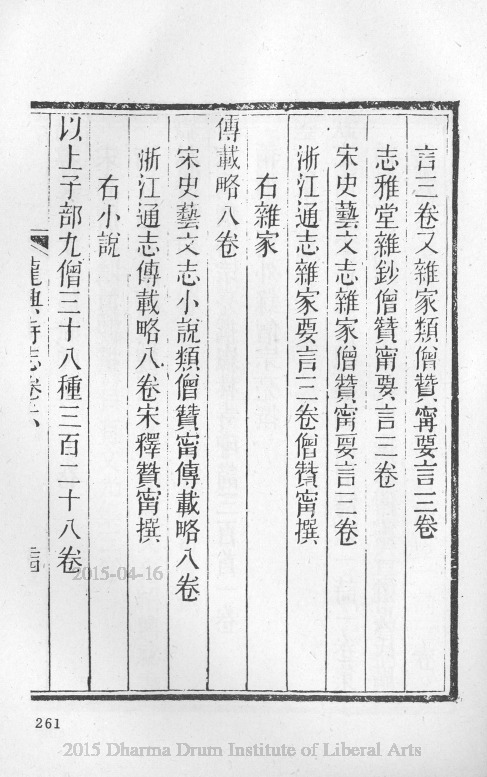 言三卷又雜家類僧贊甯要言三卷
志雅堂雜鈔僧贊甯要言三卷
宋史藝文志雜家僧贊甯要言三卷
浙江通志雜家要言三卷僧贊甯撰
右雜家
傳載略八卷
宋史藝文志小說類僧贊甯傳載略八卷
浙江通志傳載略八卷宋釋贊甯撰
右小說
以上子部九僧三十八種三百二十八卷
龍興寺志卷六
2015-04-16
261
2015 Dharma Drum Institute of Liberal Arts